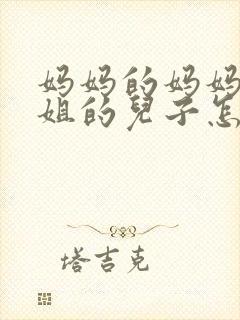 妈妈的妈妈
姐的兒子怎
塔吉克